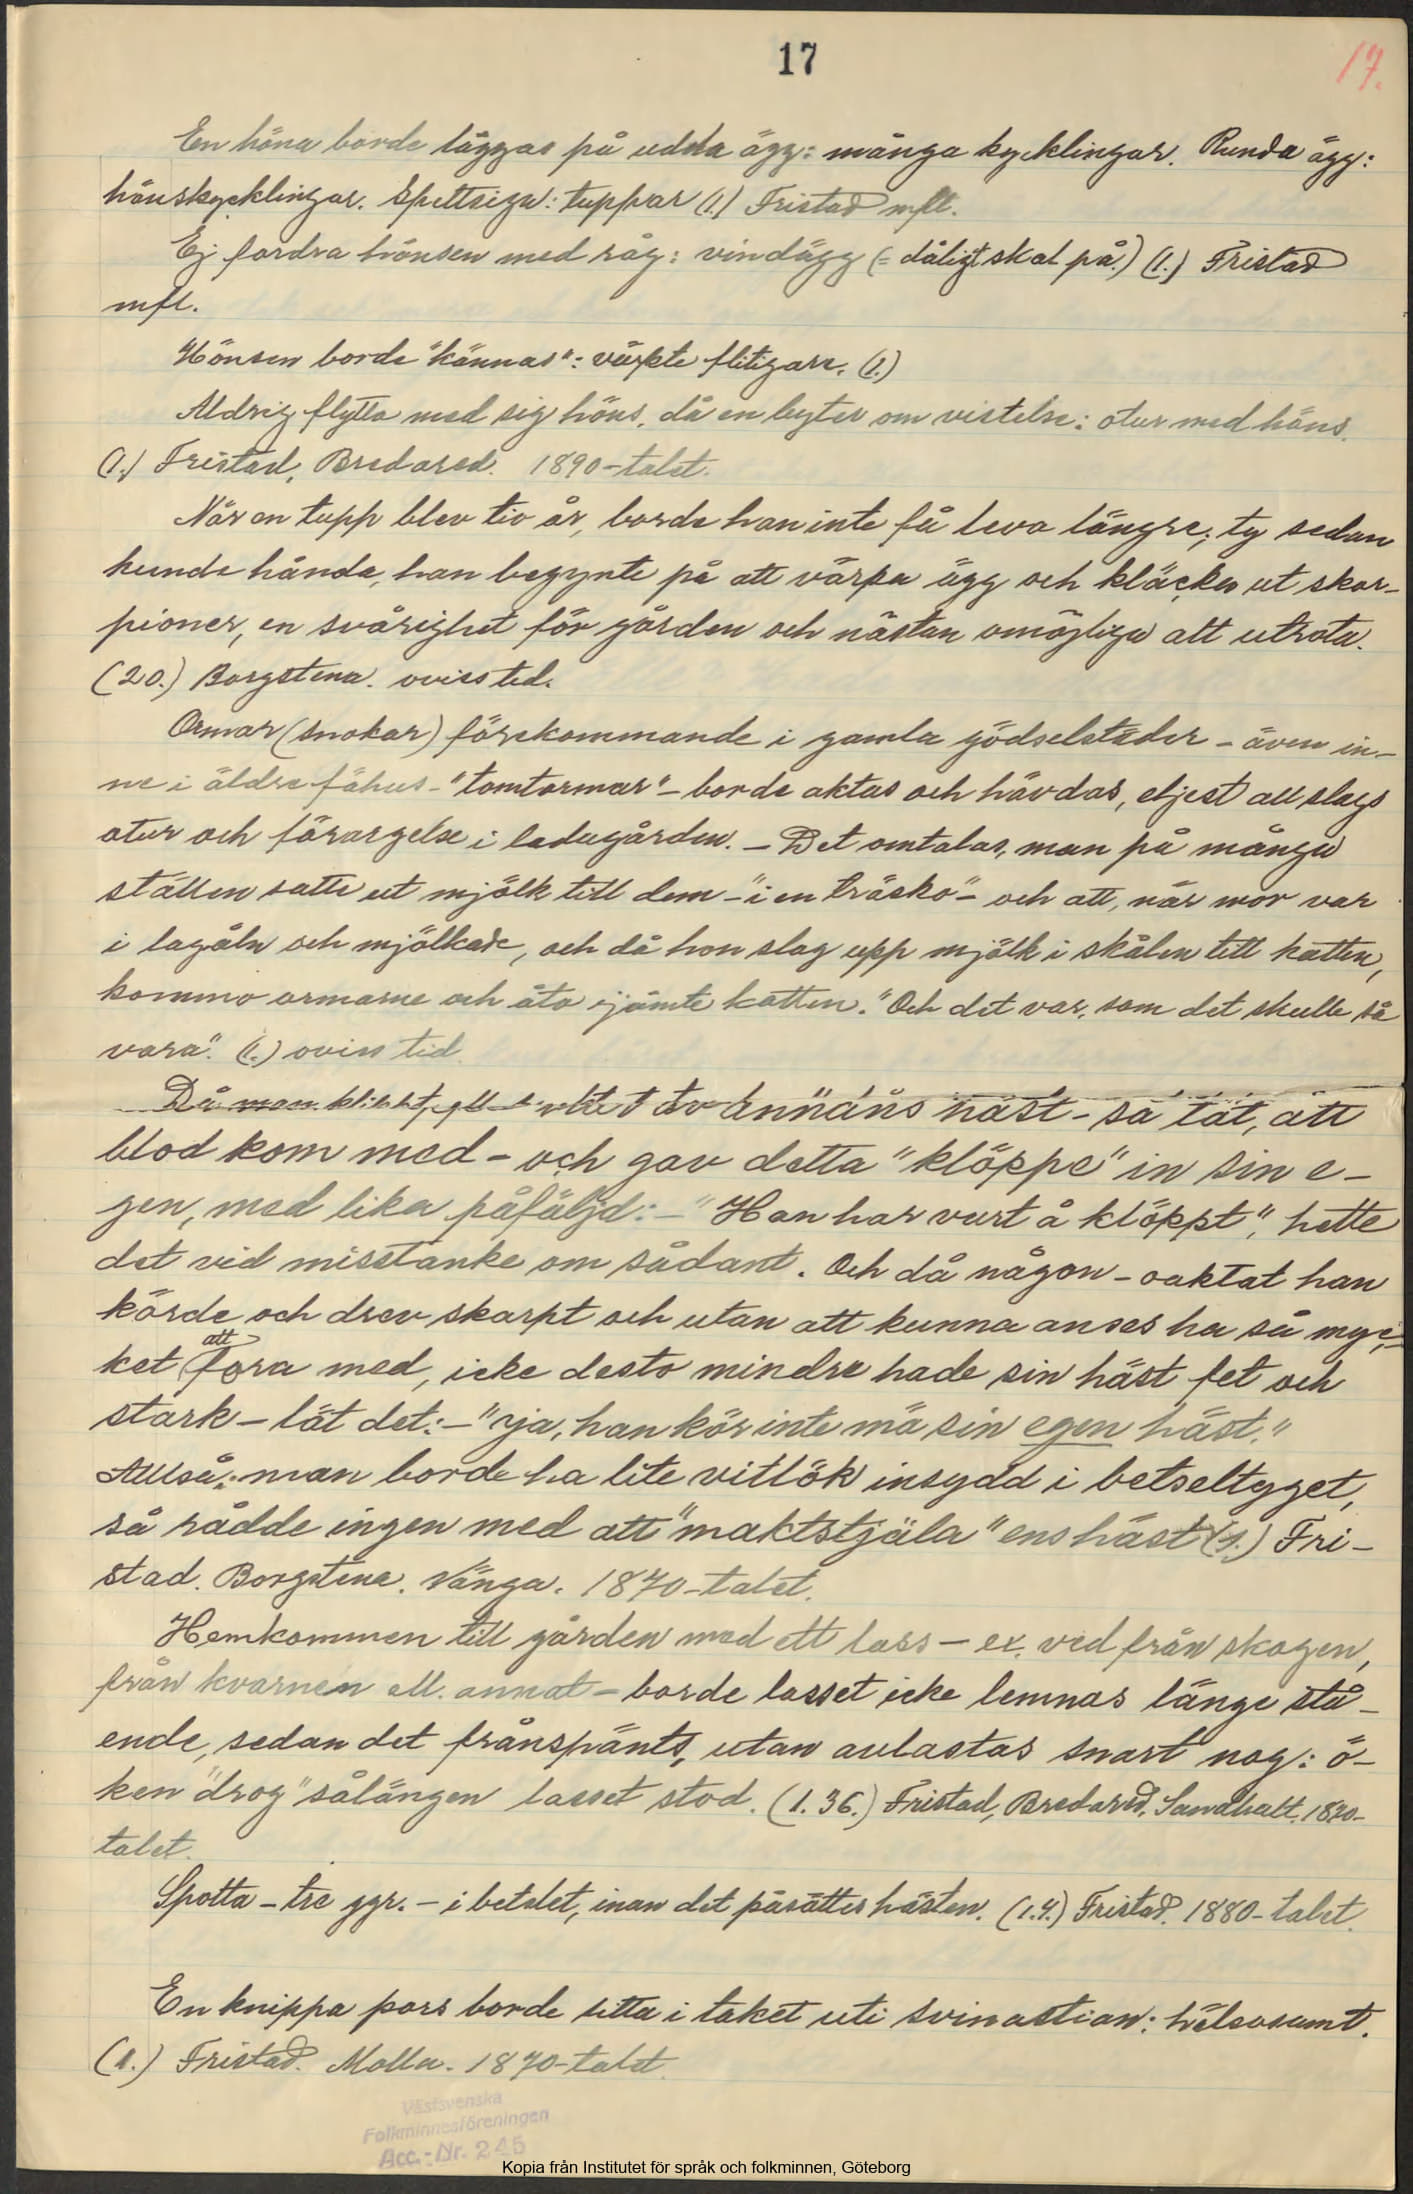 17
17.
En höna borde läggas på udda ägg: många kycklingar. Runda ägg:
hönskycklingar. Spettsiga: tuppar (1.) Fristad mfl.
Ej fordra hönsen med råg: vindägg (= dåligt skal på.) (1.) Fristad
mfl.
Hönsen borde "kännas": värpte flitigare. (1.)
Aldrig flytta med sig höns, då en byter om vistelse: otur med höns.
(1.) Fristad, Bredared. 1890-talet.
När en tupp blev tio år, borde han inte få leva längre; ty sedan
kunde hända, han begynte på att värpa ägg och kläcka ut skor-
pioner, en svårighet för gården och nästan omöjliga att utrota.
(20.) Borgstena. oviss tid.
Ormar (snokar) förekommande i gamla gödselstäder - även in-
ne i äldre fähus - "tomtormar" - borde aktas och hävdas, eljest all slags
otur och förargelse i ladugården. - Det omtalas, man på många
ställen satte ut mjölk till dem - "i en träsko" - och att, när mor var
i lagåln och mjölkade, och då hon slog upp mjölk i skålen till katten,
kommo ormarne och åto jämte katten. "Och det var, som det skulle så
vara". (1.) oviss tid.
Då man klippt av annans häst - så tät, att
blod kom med - och gav detta "klöppe" in sin e-
gen, med lika påföljd: - "Han har vart å klöppt", hette
det vid misstanke om sådant. Och då någon - oaktat han
körde och drev skarpt och utan att kunna anses ha så myc-
ket att fora med, icke desto mindre hade sin häst fet och
stark - lät det: - "Ja, han kör inte mä sin egen häst."
Alltså: man borde ha lite vitlök insydd i betseltyget,
så rådde ingen med att "maktstjäla" ens häst (1.) Fri-
stad. Borgstena. Vänga. 1870-talet.
Hemkommen till gården med ett lass - ex. ved från skogen,
från kvarnen ell. annat - borde lasset icke lemnas länge stå-
ende, sedan det frånspänts, utan avlastas snart nog: ö-
ken "drog" sålängen lasset stod. (1. 36.) Fristad, Bredared, Sandhult. 1870-
talet.
Spotta - tre ggr. - i betslet, innan det påsättes hästen. (1.4.) Fristad. 1880-talet.
En knippa pors borde sitta i taket uti svinastian: hälsosamt.
(1.) Fristad. Molla. 1870-talet.
Västsvenska
Folkminnesföreningen
Acc.-Nr. 245
Kopia från Institutet för språk och folkminnen, Göteborg